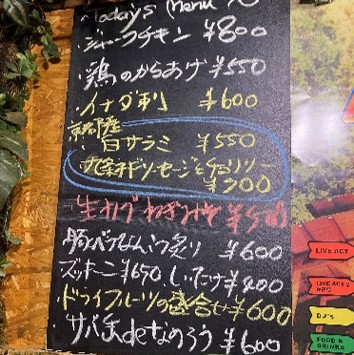 Today's Menu
・ジャークチキン ¥800
・鶏のからあげ ¥550
・イナダ刺 ¥600
京都産
・白サラミ ¥550
九条ネギソーセージとチョリソー
¥700
¥500
豚バラ炙り ¥600
ズッキーニ¥650 しいたけ¥400
・ドライフルーツの盛合せ¥600
・サバ缶deなめろう ¥600
LIVE ACT
DJ's
FOOD &
DRINKS